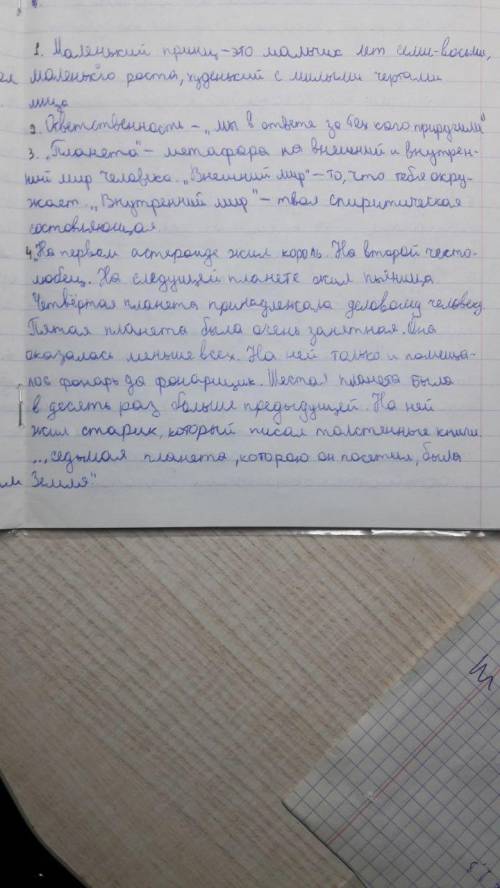 1. Маленький принц - это мальчик лет семи-восьми,
маленького роста, худенький с милыми чертами
лица
2. Ответственность - „мы в ответе за тех кого приручили"
3. „Планета" - метафора на внешний и внутрен-
ний мир человека. „Внешний мир" - то, что тебя окру-
жает. „Внутренний мир" - твоя спиритическая
состовляющая
4. На первом астероиде жил король. На второй често-
любец. На следущей планете жил пьяница.
Четвёртая планета принадлежала деловому человеку.
Пятая планета была очень занятная. Она
оказалась меньше всех. На ней только и помеща-
лось фонарь да фонарщик. Шестая планета была
в десять раз больше предыдущей. На ней
жил старик, который писал толстенные книги.
..., седьмая планета, которою он посетил, была
Земля"